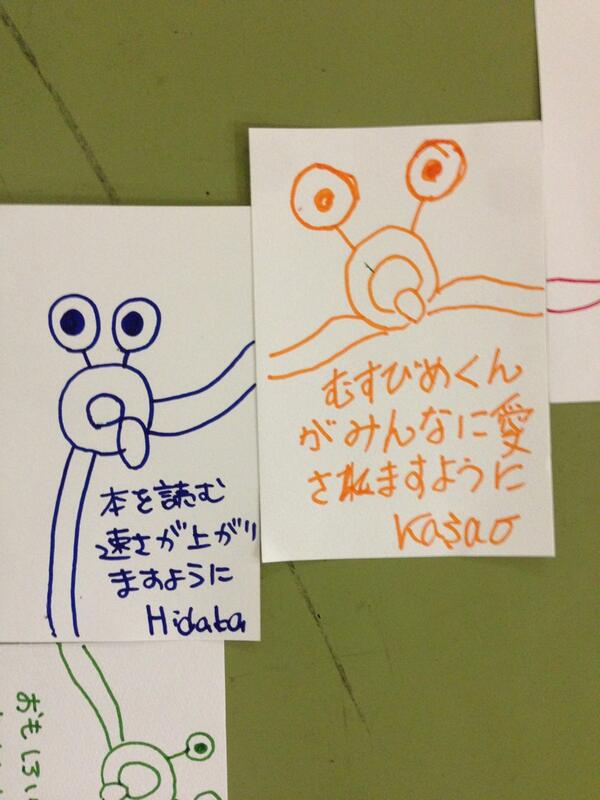 本を読む
速さが上がり
ますように
Hidaba
むすびめくん
がみんなに愛
されますように
Kasao
おもしろい